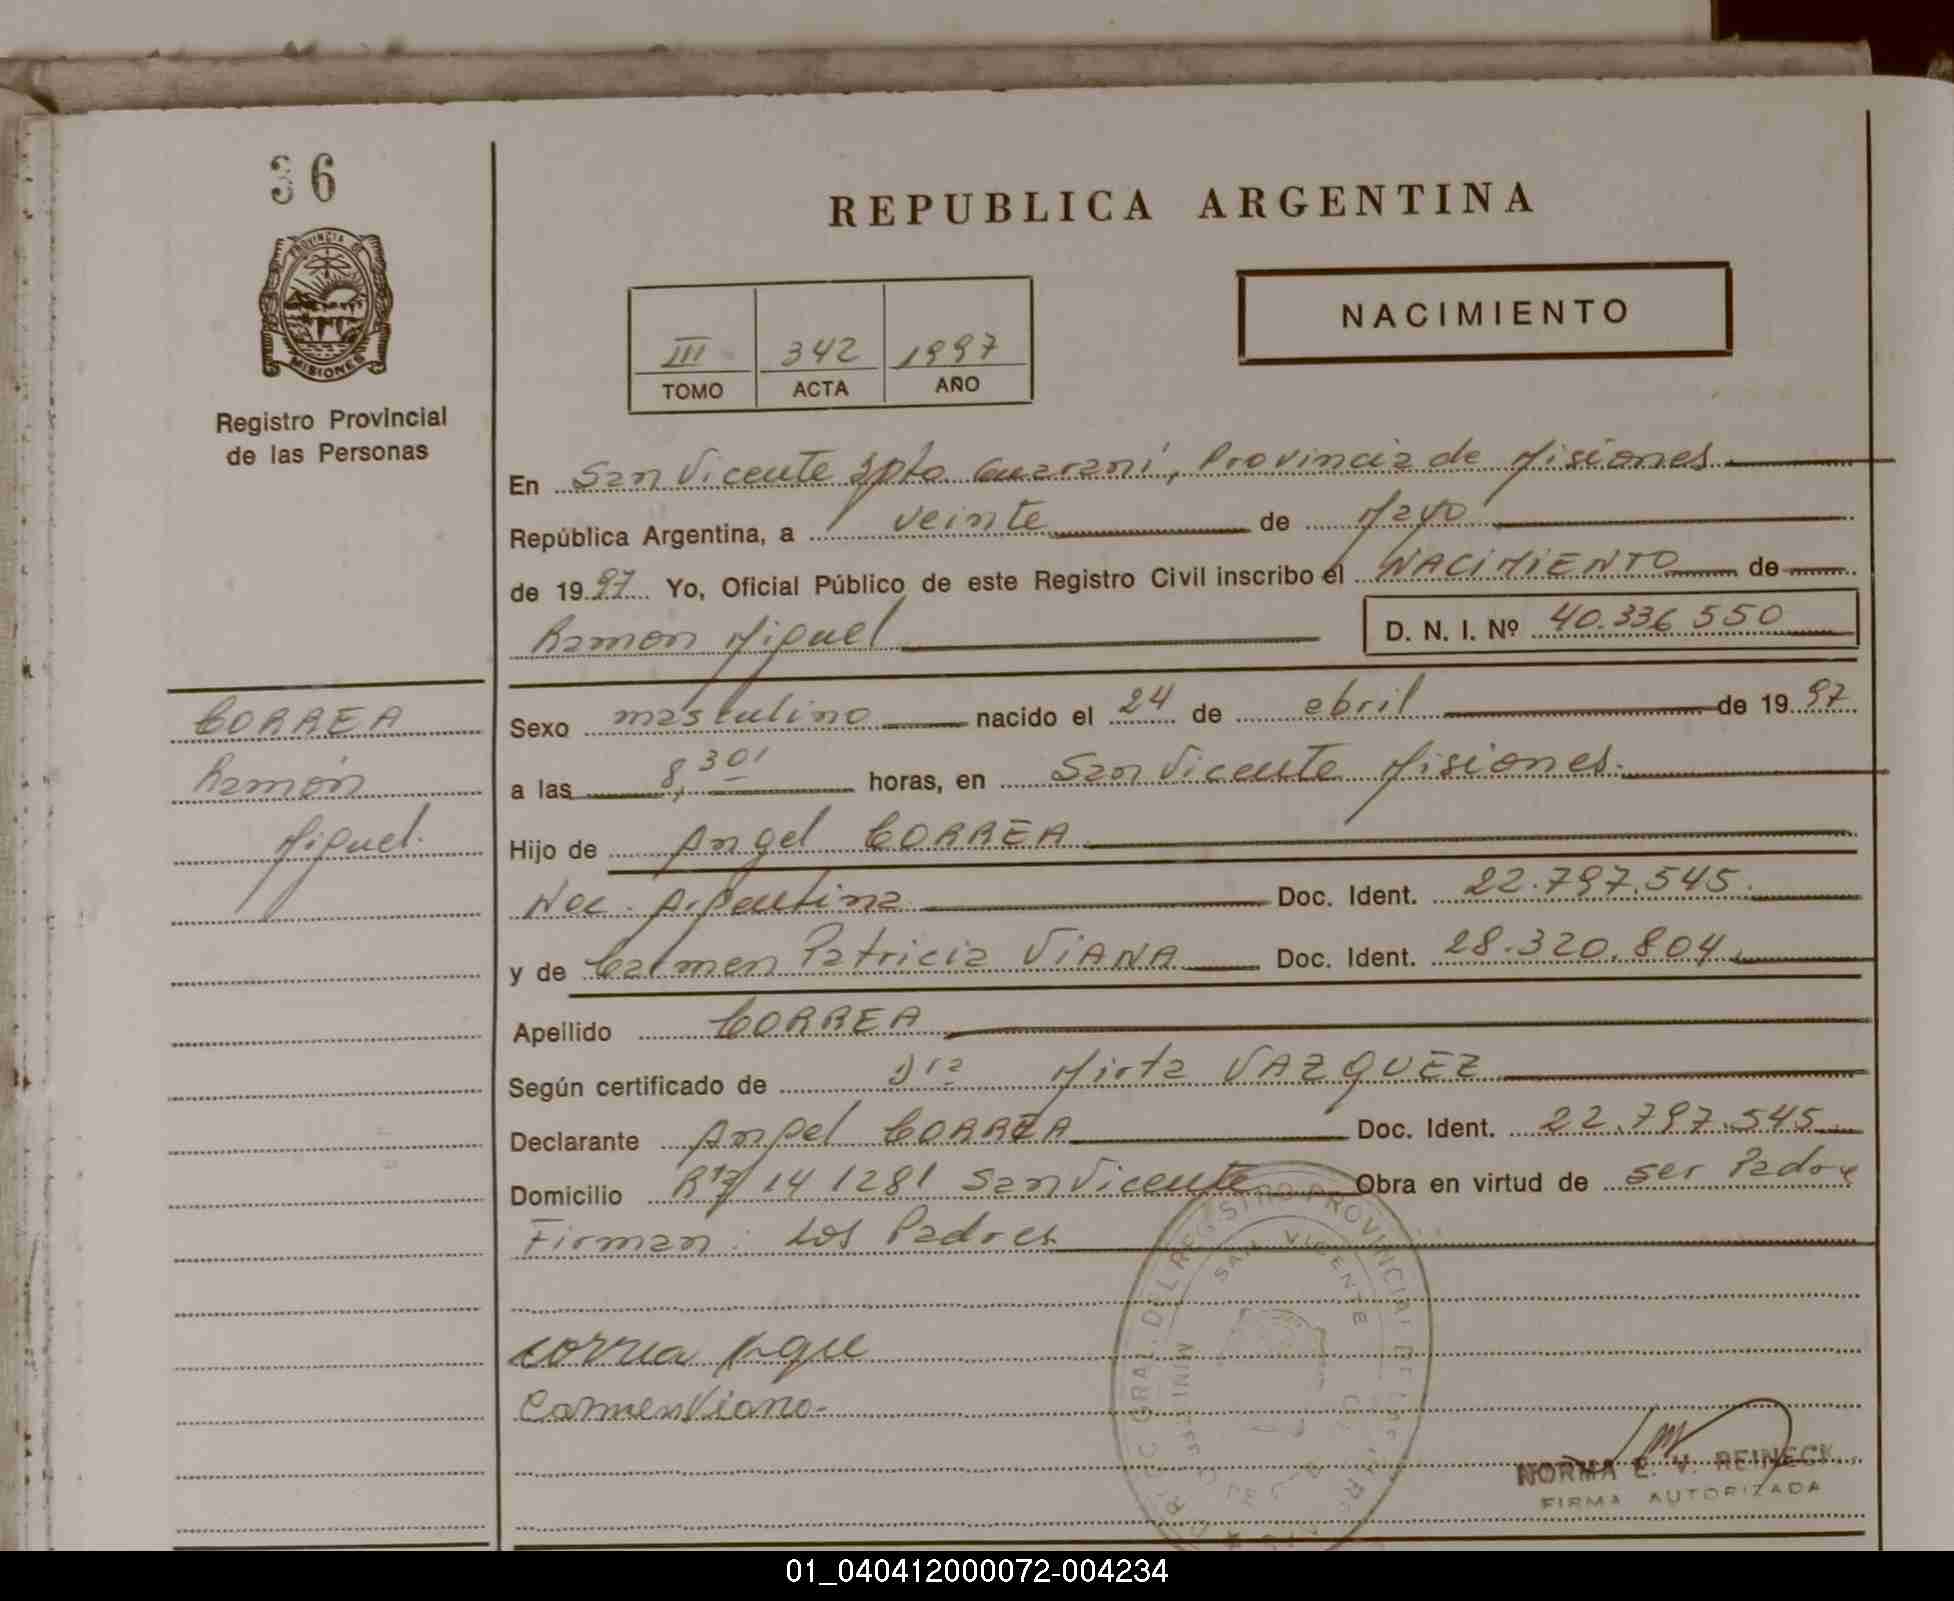 36
REPUBLICA ARGENTINA
PROVINCIA DE
MISIONES
Registro Provincial
de las Personas
III 342 1997
TOMO ACTA AÑO
NACIMIENTO
En San Vicente Dpto. Guarani, Provincia de Misiones
República Argentina, a veinte de Mayo
de 1997 Yo, Oficial Público de este Registro Civil inscribo el NACIMIENTO de
Ramon Miguel D. N. I. Nº 40.336 550
CORREA
Ramón
Miguel.
Sexo masculino nacido el 24 de abril de 1997
a las 8,30' horas, en San Vicente Misiones.
Hijo de Angel CORREA
Nac. Argentina Doc. Ident. 22.797.545.
y de Carmen Patricia VIANA Doc. Ident. 28.320.804
Apellido CORREA
Según certificado de Dra Mirta VAZQUEZ
Declarante Angel CORREA Doc. Ident. 22.797.545
Domicilio 14 1281 San Vicente Obra en virtud de ser Padre
Firman: Los Padres
REGISTRO PROVINCIAL DE LAS
SAN VICENTE
correa
Carmen Viana
NORMA E. V. REINECK
FIRMA AUTORIZADA
01_040412000072-004234